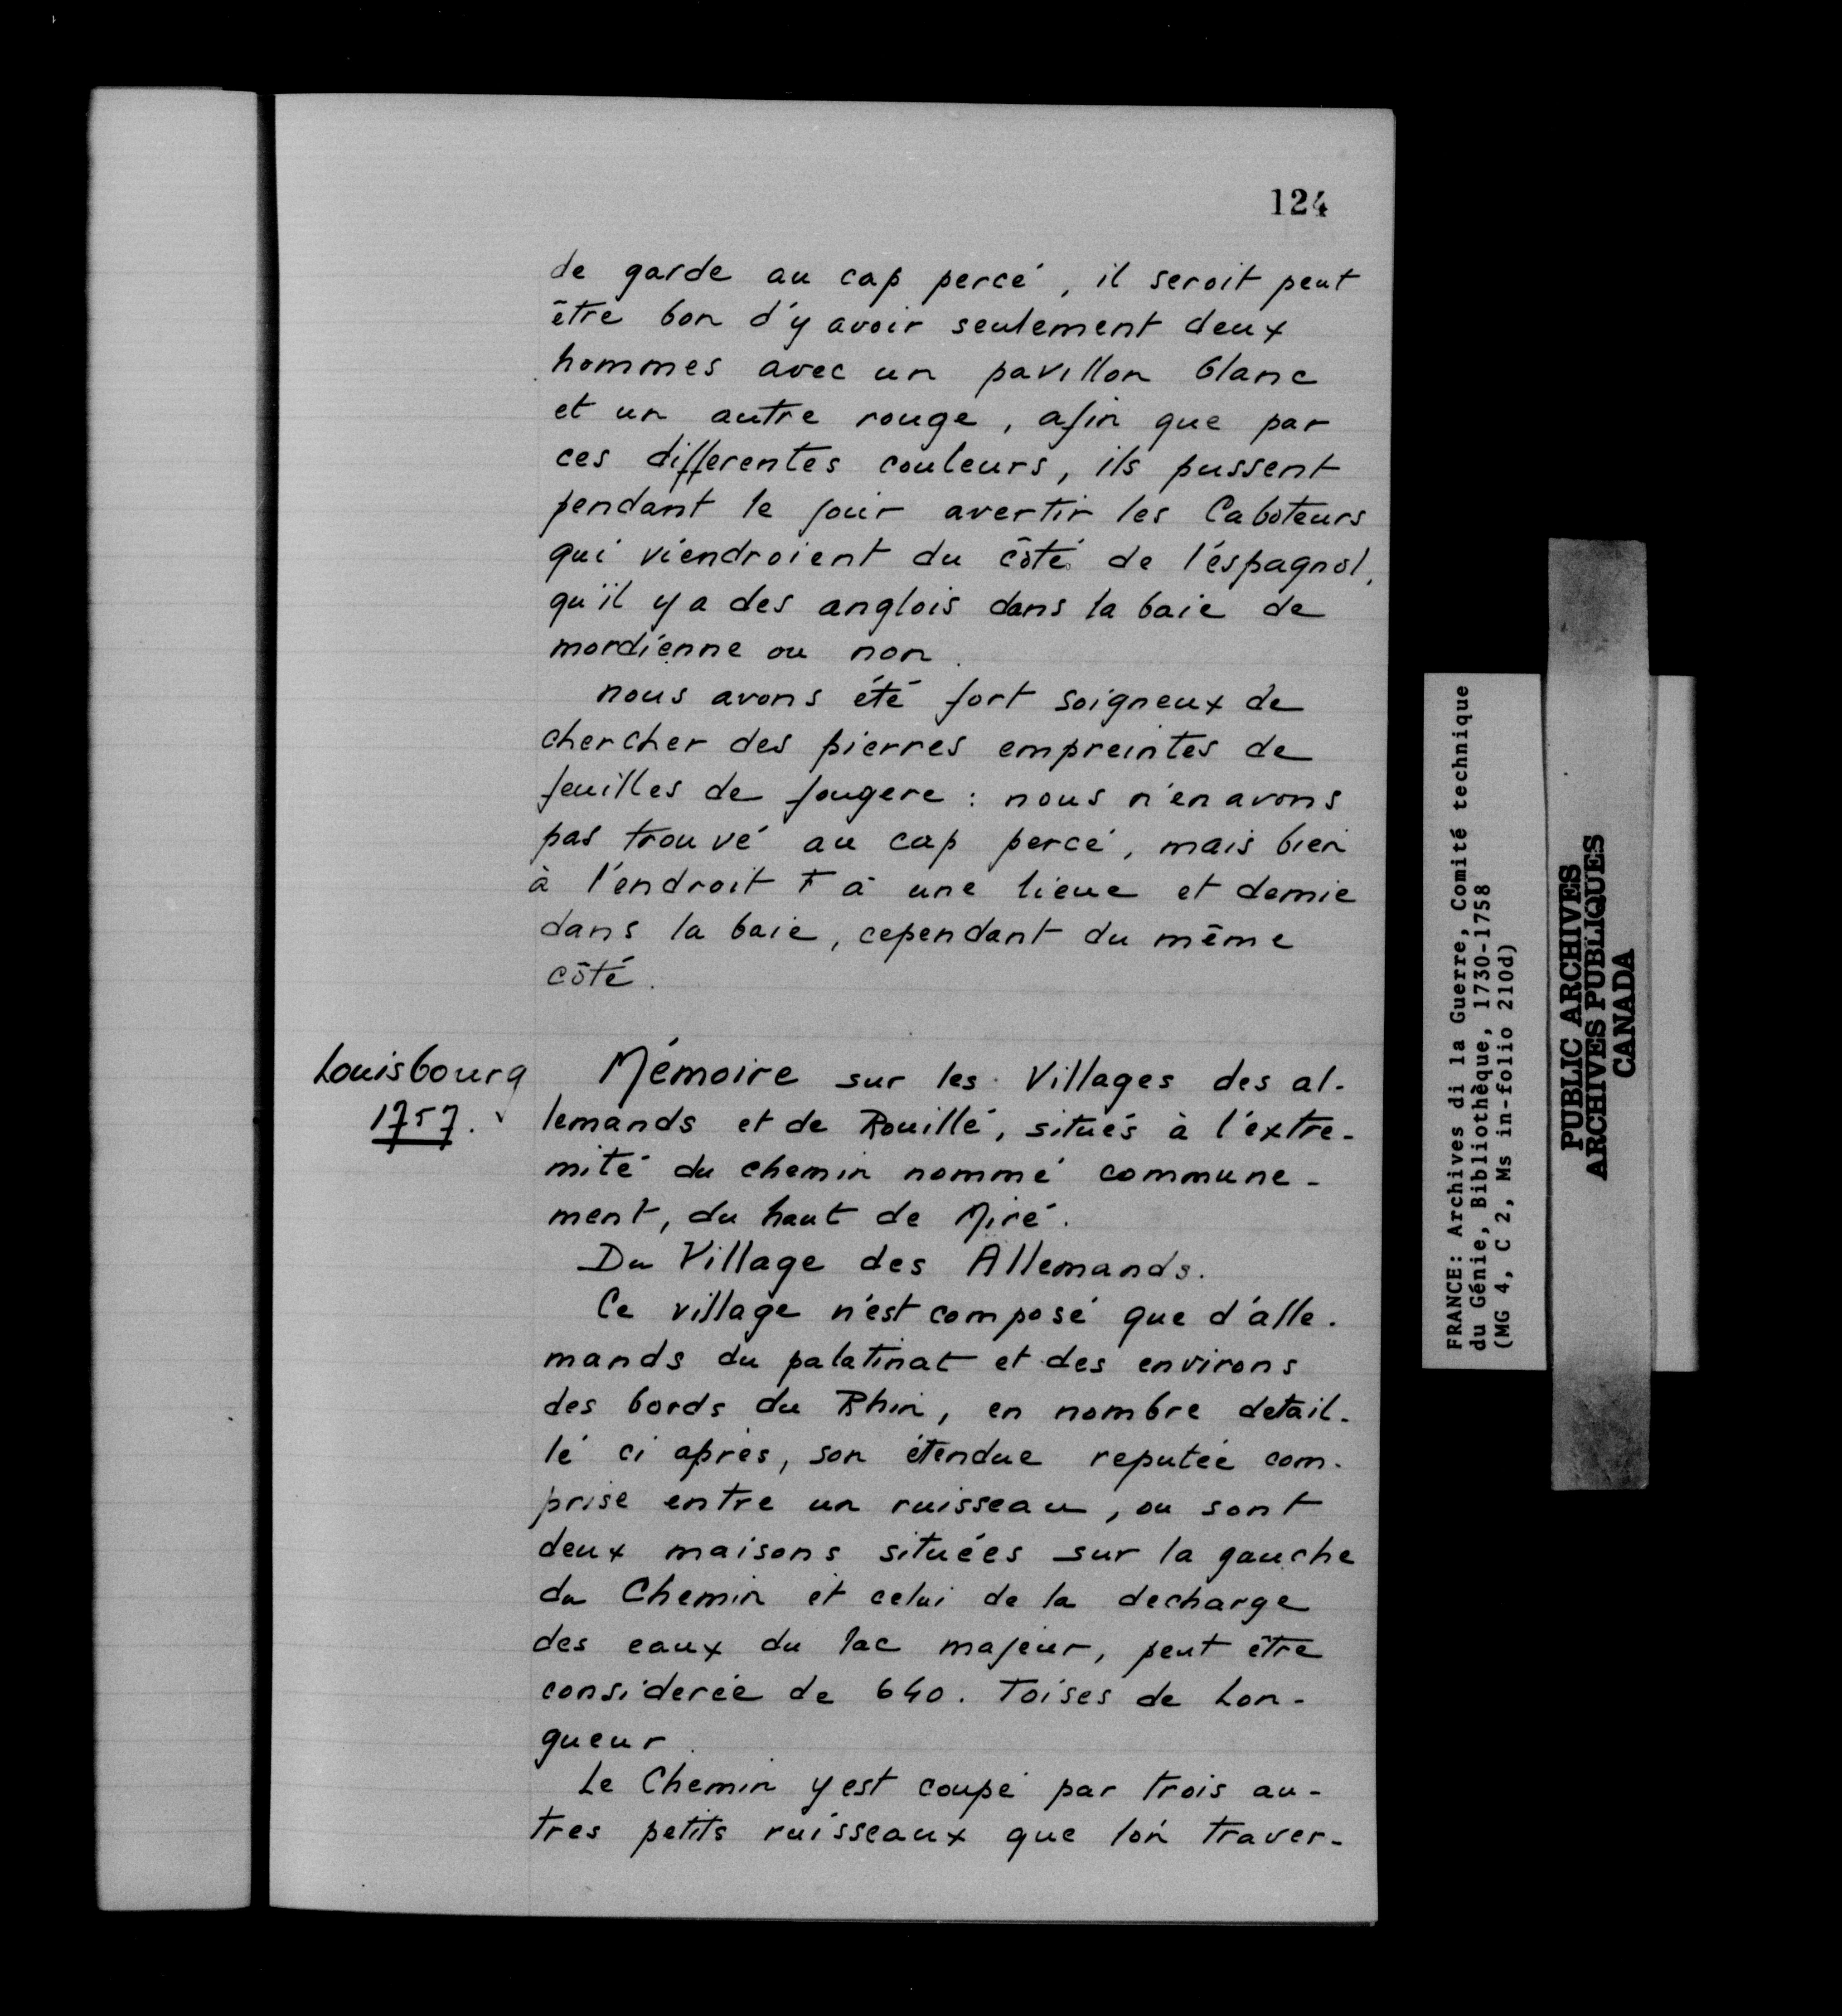 124
de garde au cap percé, il seroit peut
être bon d'y avoir seulement deux
hommes avec un pavillon blanc
et un autre rouge, afin que par
ces differentes couleurs, ils pussent
pendant le jour avertir les Caboteurs
qui viendroient du côté de l'éspagnol,
qu'il y a des anglois dans la baie de
mordienne ou non.
nous avons été fort soigneux de
chercher des pierres empreintes de
feuilles de fougere : nous n'en avons
pas trouvé au cap percé, mais bien
à l'endroit F à une lieue et demie
dans la baie, cependant du même
côté.
Louisbourg
1757.
Mémoire sur les Villages des al-
lemands et de Rouillé, situés à l'éxtre-
mité du chemin nommé commune-
ment, du haut de Miré.
Du Village des Allemands.
Ce village n'est composé que d'alle-
mands du palatinat et des environs
des bords du Rhin, en nombre detail-
lé ci après, son étendue reputée com-
prise entre un ruisseau, ou sont
deux maisons situées sur la gauche
du Chemin et celui de la decharge
des eaux du lac majeur, peut être
considerée de 640. Toises de Lon-
gueur.
Le Chemin y est coupé par trois au-
tres petits ruisseaux que l'on traver-
FRANCE: Archives di la Guerre, Comité technique
du Génie, Bibliothèque, 1730-1758
(MG 4, C 2, Ms in-folio 210d)
PUBLIC ARCHIVES
ARCHIVES PUBLIQUES
CANADA